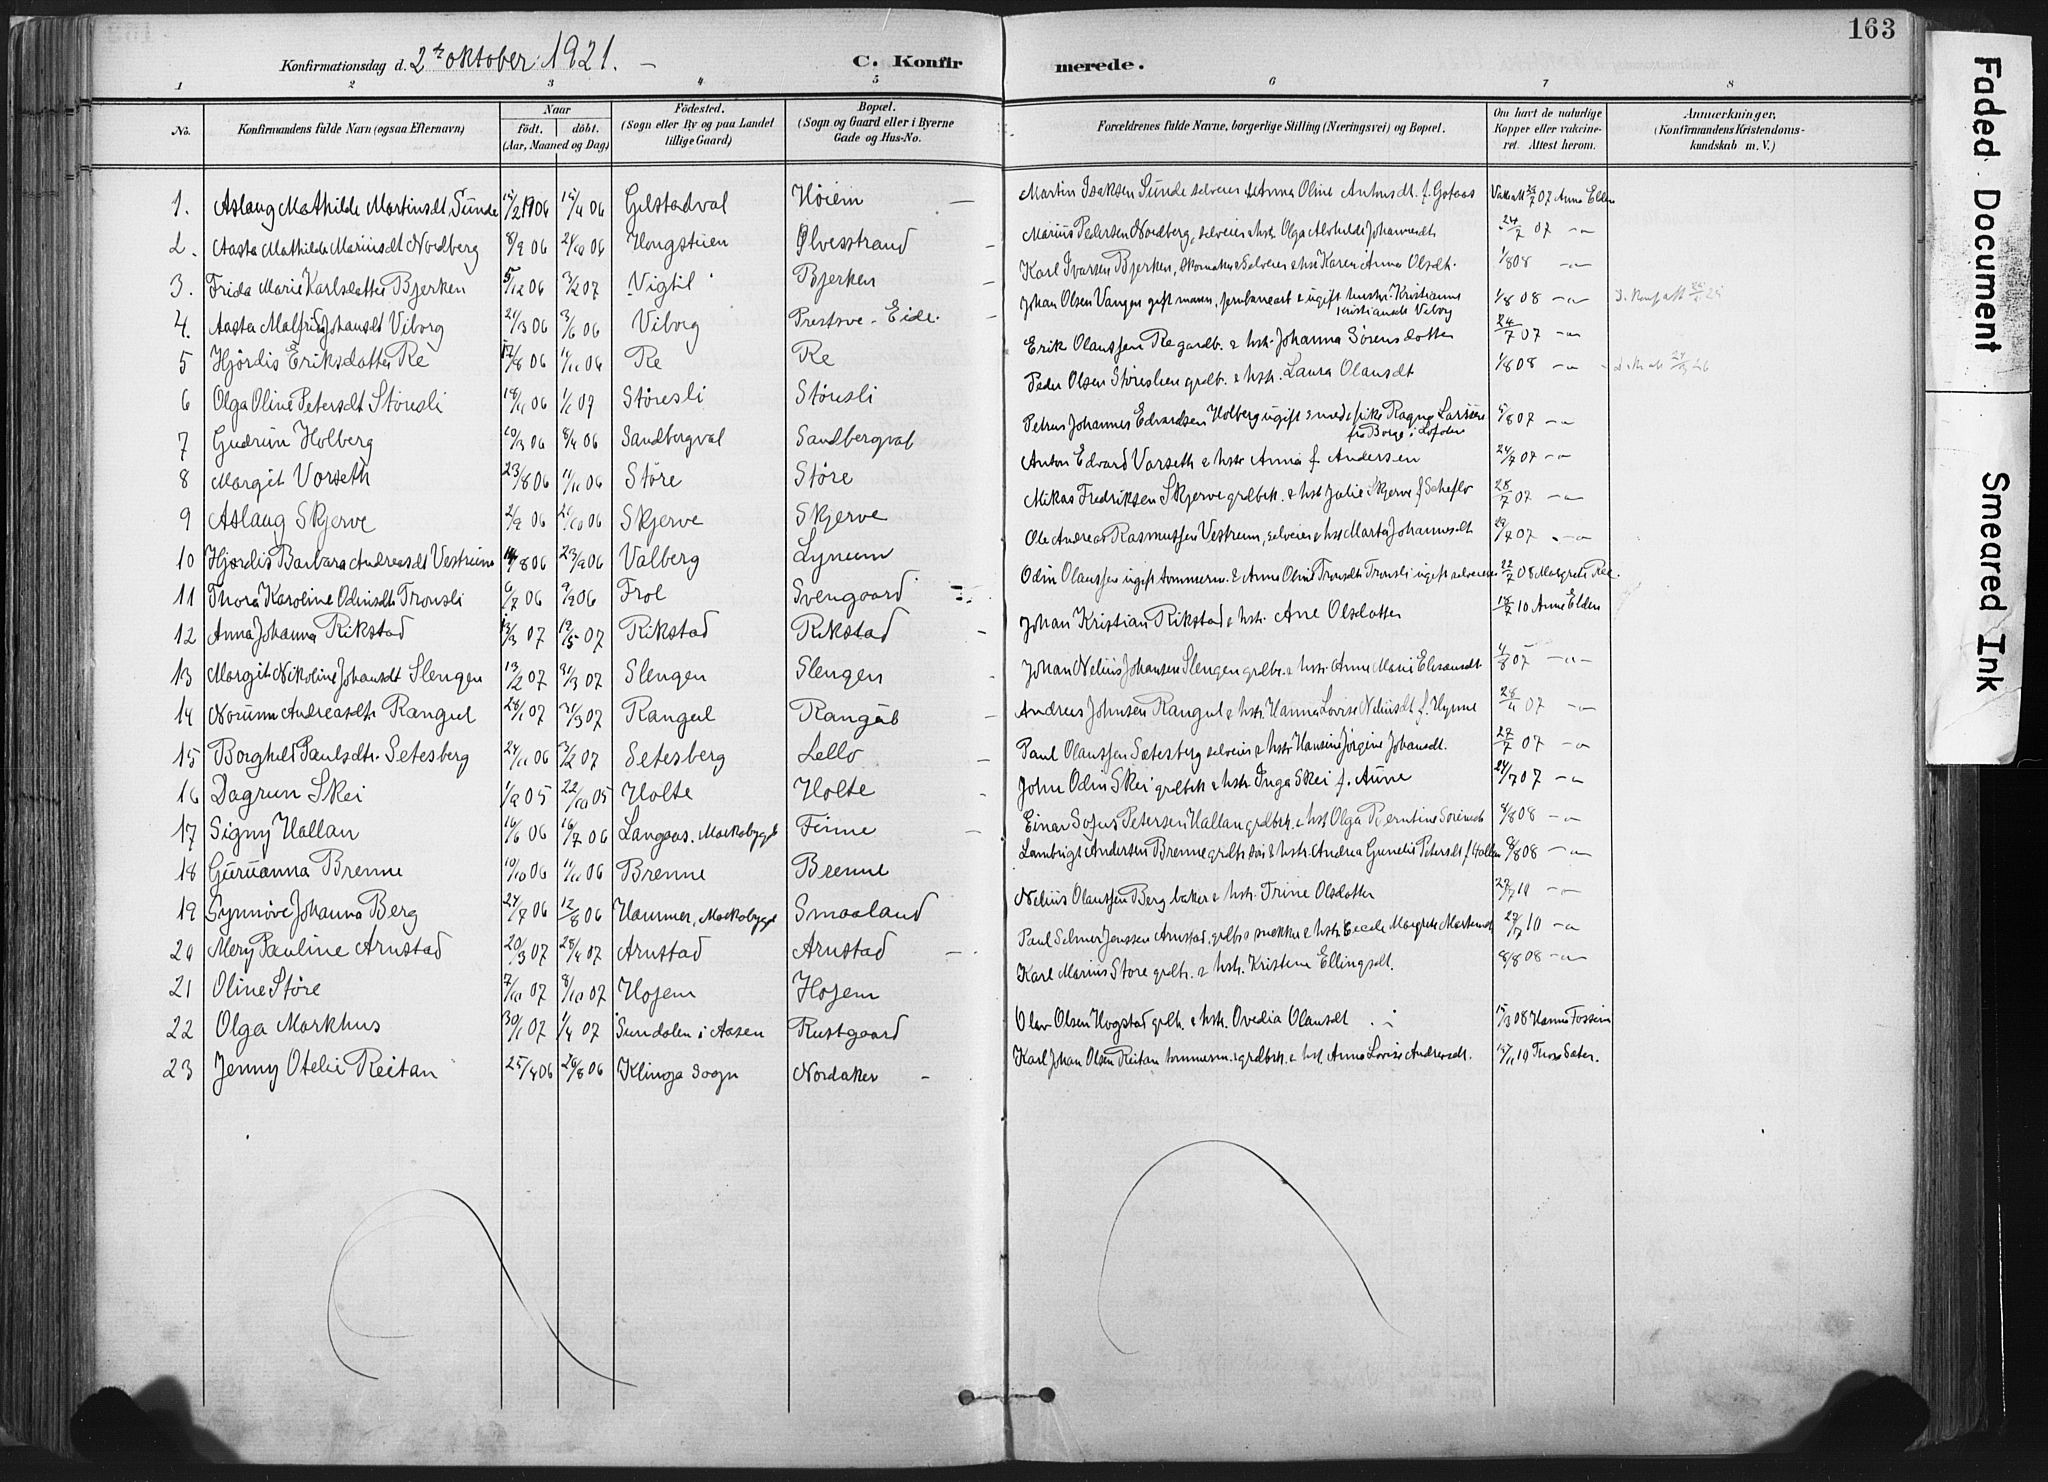 163
Konfirmationsdag d. 2den oktober 1921. –
C. Konfirmerede.
1 2 3 4 5 6 7 8
No.
Konfirmandens fulde Navn (ogsaa Efternavn)
Naar
födt. döbt.
(Aar, Maaned og Dag)
Födested.
(Sogn eller By og paa Landet
tillige Gaard)
Bopæl.
(Sogn og Gaard eller i Byerne
Gade og Hus-No.
Forældrenes fulde Navne, borgerlige Stilling (Næringsvei) og Bopæl.
Om havt de naturlige
Kopper eller vakcine-
ret. Attest herom.
Anmærkninger,
(Konfirmandens Kristendoms-
kundskab m. V.)
1. Aslaug Mathilde Martinsdt. Sunde 15/2 1906 15/4 06 Gilstadval Höiem – Martin Isaksen Sunde selveier & Anna Oline Antonsdt. f. Gotaas 07 Anne Elden
2. Aasta Mathilde Mariusdt Nordberg 8/9 06 21/10 06 Hongstuen Ølvesstrand – Marius Pedersen Nordberg, selveier & hstr. Olga Alvhilde Johannesdt 24/7 07 –"–
3. Frida Marie Karlsdatter Bjerken 5/12 06 3/2 07 Vigtil Bjerken – Karl Ivarsen Bjerken, skomaker & selveier & hst Karen Anna Olsdt. 1/8 08 –"–
4. Aasta Malfrid Johansdt Viborg 21/3 06 3/6 06 Viborg Prestsve - Eide. – Johan Olsen Vangen gift mann, & ugift hustr. Kristianne Kristiansdt Viborg 1/8 08 –"–
5 Hjördis Eriksdatter Re 17/8 06 11/11 06 Re Re Erik Olaussen Re gardb. & hstr. Johanna Sörensdatter 24/7 07 –"–
6 Olga Oline Petersdt Störesli 18/11 06 1/1 07 Störesli Störesli Peder Olsen Störeslien grdb. & hstr. Laura Olausdt 1/8 08 –"–
7 Gudrun Holberg 10/3 06 8/4 06 Sandbergval Sandbergval Petrus Johannes Edvardsen Holberg ugift smed & pike Ragna Larssen fra Borge i Lofoten 5/8 07 –"–
8 Margit Vorseth 23/8 06 11/11 06 Störe Störe Anton Edvard Vorseth & hstr Anna f. Andersen 24/7 07 –"–
9 Aslaug Skjerve 2/9 06 21/10 06 Skjerve Skjerve Mikas Fredriksen Skjerve grdbr. & hst Julie Skjerve f. Scheflo 28/7 07 –"–
10 Hjördis Barbara Andreasdt Vestrum 14/8 06 23/9 06 Valberg Lyneum Ole Andreas Rasmussen Vestrum, selveier & hst Marta Johannesdt 29/7 07 –"–
11 Thora Karoline Odinsdt Tronsli 6/7 06 9/9 06 Frol Svengaard Odin Olaussen ugift tommerm. & Anna Oline Tronsdt Tronsli ugift selveier 22/7 08 Margrete Ree
12 Anna Johanna Rikstad 13/3 07 12/5 07 Rikstad Rikstad – Johan Kristian Rikstad & hstr. Ane Olsdatter 18/7 10 Anne Elden
13 Margit Nikoline Johansdt Slengen 13/2 07 31/3 07 Slengen Slengen Johan Nelius Johansen Slengen grdbr. & hstr. Anne Marie Eliseusdt 4/8 07 –"–
14 Norunn Andreasdtr Rangul 28/1 07 31/3 07 Rangul Rangul – Andreas Johnsen Rangul & hstr. Hanna Lovise Neliusdt f. Hynne 28/11 07 –"–
15 Borghild Paulsdtr. Setesberg 24/11 06 3/2 07 Setesberg Lello – Paul Olaussen Sætesberg selveier & hstr Hansine Jörgine Johansdt. 27/7 07 –"–
16 Dagrun Skei 1/9 05 22/10 05 Holte Holte – John Odin Skei grdbr & hstr Inga Skei f. Aune 24/7 07 –"–
17 Signy Hallan 16/6 06 16/7 06 Langaas. Markabygd Finne – Einar Sofus Petersen Hallan grdbr. & hst Olga Berntine Sörensdt 8/8 08 –"–
18 Guruanna Brenne 10/10 06 11/11 06 Brenne Brenne Lambrigt Andersen Brenne grdbr & hstr. Andrea Gunelie Petersdt f. Hallan 8/8 08 –"–
19 Synnöve Johanna Berg 24/7 06 12/8 06 Hammer, Markabygd Smaaland Nelius Olaussen Berg baker & hstr. Trine Olsdatter 27/7 10 –"–
20 Mery Pauline Arnstad 20/3 07 28/4 07 Arnstad Arnstad – Paul Selmer Jenssen Arnstad, grdbr & snekker & hstr Cecele Margrete Martinsdt 27/7 10 –"–
21 Oline Störe 7/10 07 8/10 07 Hojem Hojem Karl Marius Störe grdbr. & hstr. Kristine Ellingsdt. 8/8 08 –"–
22 Olga Markhus 30/1 07 1/4 07 Sundalen i Aasen Rustgaard Olav Olsen Hogstad grdbr. & hstr. Ovedia Olausdt 15/3 08 Hanna Fossem
23 Jenny Otelie Reitan 25/4 06 26/8 06 Klinga Sogn Nordaker – Karl Johan Olsen Reitan tommerm. & grdbr. & hst Anna Lovise Andreasdt. 10 Tora Sater.
Faded Document
Smeared Ink